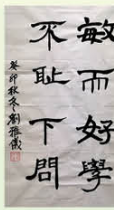 敏而好學
不恥下問
癸卯秋冬劉雅儀